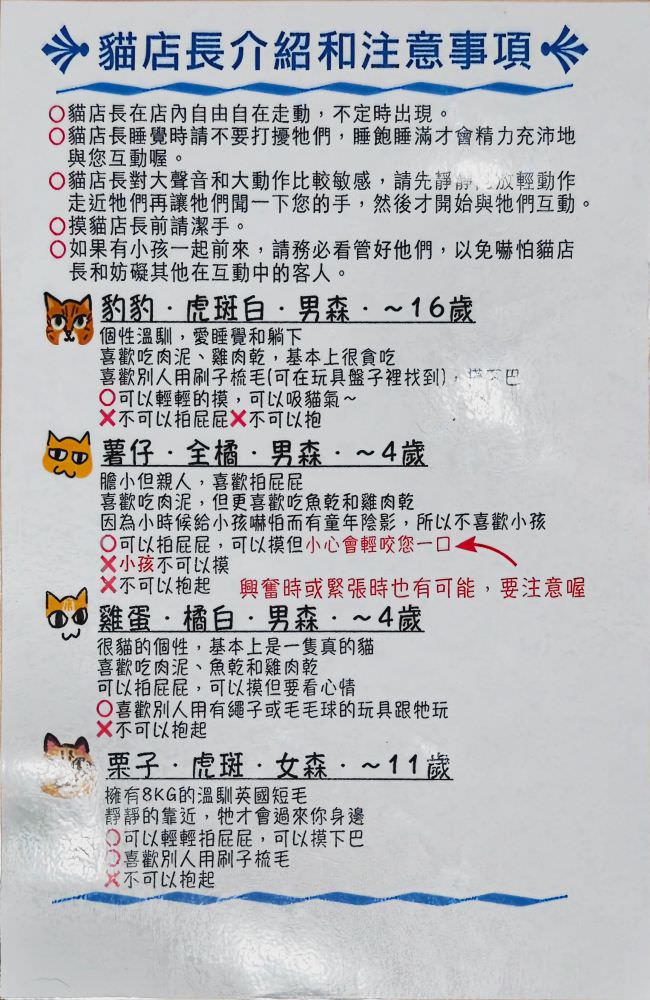 貓店長介紹和注意事項
○貓店長在店內自由自在走動，不定時出現。
○貓店長睡覺時請不要打擾牠們，睡飽睡滿才會精力充沛地
與您互動喔。
○貓店長對大聲音和大動作比較敏感，請先靜靜放輕動作
走近牠們再讓牠們聞一下您的手，然後才開始與牠們互動。
○摸貓店長前請潔手。
○如果有小孩一起前來，請務必看管好他們，以免嚇怕貓店
長和妨礙其他在互動中的客人。
豹豹．虎斑白．男森．~16歲
個性溫馴，愛睡覺和躺下
喜歡吃肉泥、雞肉乾，基本上很貪吃
喜歡別人用刷子梳毛(可在玩具盤子裡找到)，下巴
○可以輕輕的摸，可以吸貓氣~
×不可以拍屁屁×不可以抱
薯仔．全橘．男森．~4歲
膽小但親人，喜歡拍屁屁
喜歡吃肉泥，但更喜歡吃魚乾和雞肉乾
因為小時候給小孩嚇怕而有童年陰影，所以不喜歡小孩
○可以拍屁屁，可以摸但小心會輕咬您一口
×小孩不可以摸
×不可以抱起
興奮時或緊張時也有可能，要注意喔
雞蛋．橘白．男森．~4歲
很貓的個性，基本上是一隻真的貓
喜歡吃肉泥、魚乾和雞肉乾
可以拍屁屁，可以摸但要看心情
○喜歡別人用有繩子或毛毛球的玩具跟牠玩
×不可以抱起
栗子．虎斑．女森．~11歲
擁有8KG的溫馴英國短毛
靜靜的靠近，牠才會過來你身邊
○可以輕輕拍屁屁，可以摸下巴
○喜歡別人用刷子梳毛
×不可以抱起